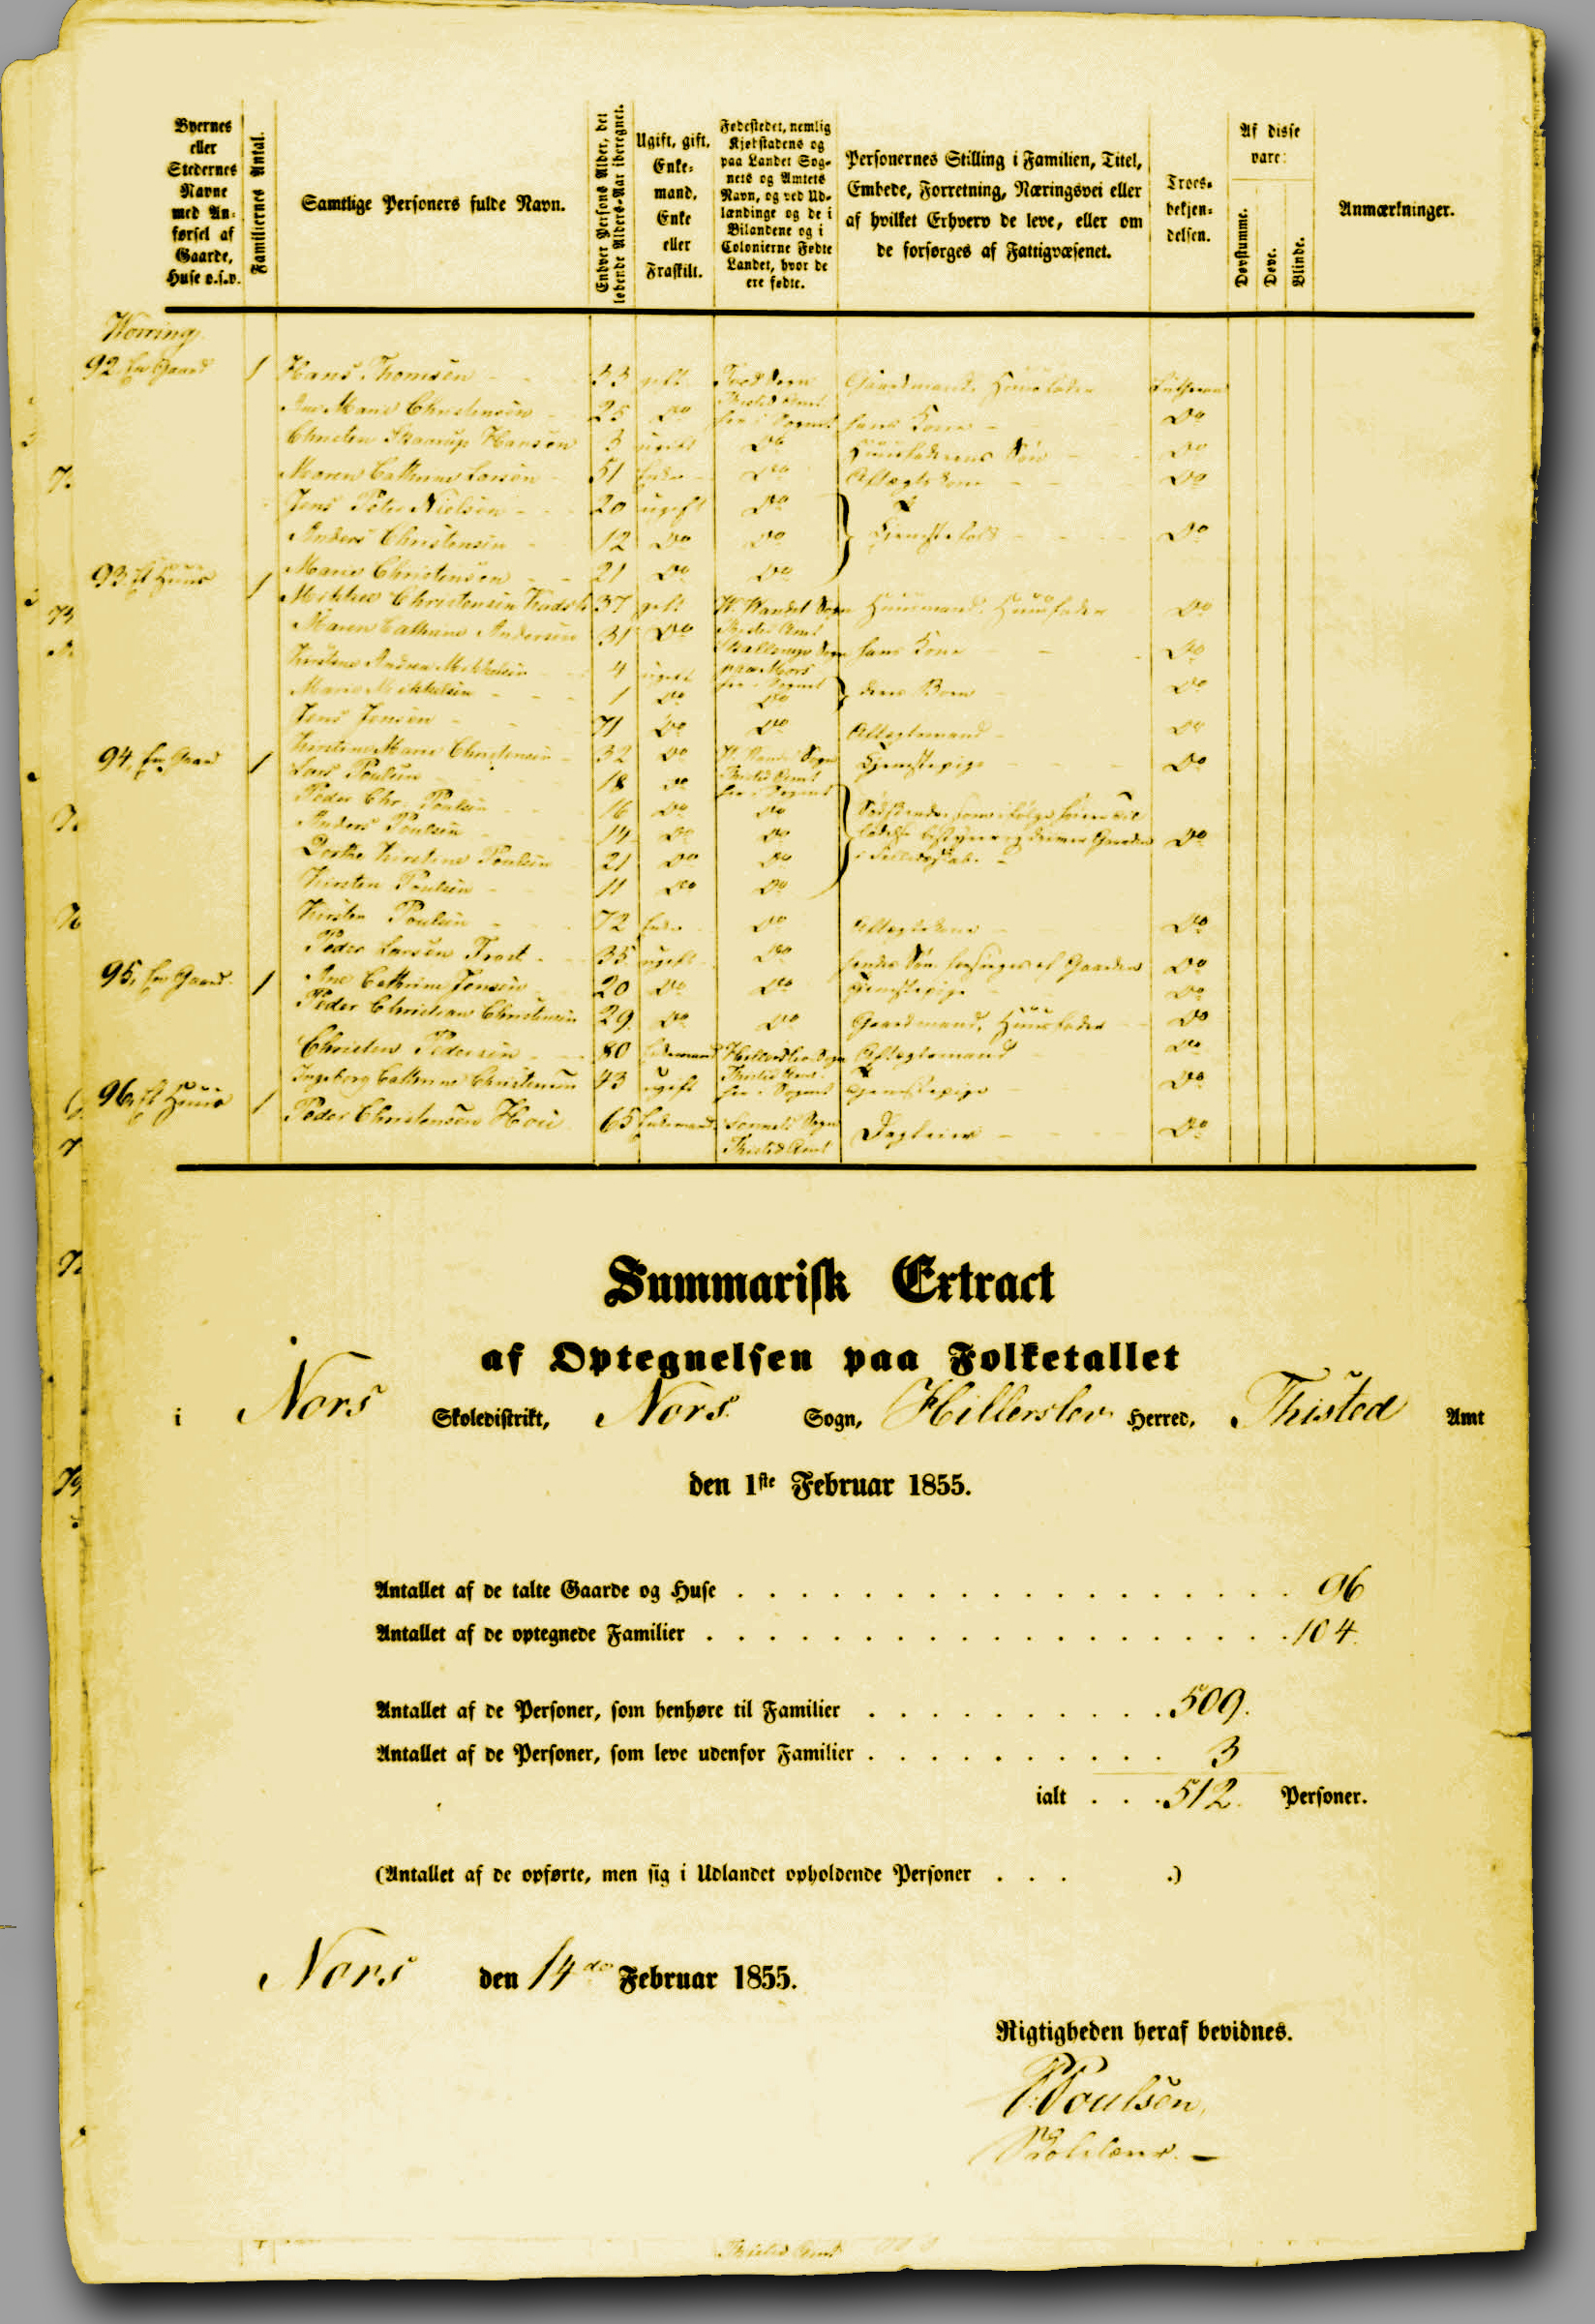 Byernes
eller
Stedernes
Navne
med An-
førsel af
Gaarde,
Huse o.s.v.
Familiernes Antal.
Samtlige Personers fulde Navn.
Enhver Persons Alder, det
løbende Alders-Aar iberegnet.
Ugift, gift,
Enke-
mand,
Enke
eller
Fraskilt.
Fødestedet, nemlig
Kjøbstadens og
paa Landet Sog-
nets og Amtets
Navn, og ved Ud-
lændinge og de i
Bilandene og i
Colonierne Fødte
Landet, hvor de
ere fødte.
Personernes Stilling i Familien, Titel,
Embede, Forretning, Næringsvei eller
af hvilket Erhverv de leve, eller om
de forsørges af Fattigvæsenet.
Troes-
bekjen-
delsen.
Af disse
vare:
Døvstumme.
Døve.
Blinde.
Anmærkninger.
92 En Gaard 1 Hans Thomsen 33 gift Gaardmand, Huusfader
Ane Marie Christensen 25 Do her i Sognet hans Kone Do
Christen Skaarup Hansen 3 ugift Do Huusfaderens Søn Do
Maren Cathrine Larsen 51 Enke Do Aftægtskone Do
Jens Peter Nielsen 20 ugift Do
Anders Christensen 12 Do Do Tjenestefolk Do
Marie Christensen 21 Do Do
93 Et Huus 1 Mikkel Christensen 37 gift Huusmand, Huusfader Do
Thisted Amt
Maren Cathrine Andersen 31 Do hans Kone Do
paa Mors
Kirstine Andrea Mikkelsen 4 ugift her i Sognet deres Børn Do
Marie Mikkelsen 1 Do Do
Jens Jensen 71 Do Do Aftægtsmand Do
Kirstine Marie Christensen 32 Do Tjenestepige Do
Thisted Amt
94 En Gaard 1 Lars Poulsen 18 Do her i Sognet
Peder Chr. Poulsen 16 Do Do
Anders Poulsen 14 Do Do Do
Dorthe Kirstine Poulsen 21 Do Do i Fælledsskab.
Kirsten Poulsen 11 Do Do
Kirsten Poulsen 72 Enke Do Aftægtskone Do
Peder Larsen Trost 35 ugift Do hendes Søn forsørges af Gaarden Do
Ane Cathrine Jensen 20 Do Do Tjenestepige Do
95, En Gaard 1 Peder Christian Christensen 29 Do Do Gaardmand, Huusfader Do
Christen Pedersen 80 Enkemand Hillerslev Sogn Aftægtsmand Do
Thisted Amt
Ingeborg Cathrine Christensen 43 ugift her i Sognet Tjenestepige Do
96, Et Huus 1 Peder Christensen Hou 65 Enkemand Sennels Sogn Dagleier Do
Thisted Amt
Summarisk Extract
af Optegnelsen paa Folketallet
i Nors Skoledistrikt, Nors Sogn, Hillerslev Herred, Thisted Amt
den 1ste Februar 1855.
Antallet af de talte Gaarde og Huse . . . 96
Antallet af de optegnede Familier . . . 104.
Antallet af de Personer, som henhøre til Familier . . . 509.
Antallet af de Personer, som leve udenfor Familier . . . 3
ialt . . . 512. Personer.
(Antallet af de opførte, men sig i Udlandet opholdende Personer . . . .)
Nors den 14de Februar 1855.
Rigtigheden heraf bevidnes.
Poulsen,
Thisted Amt